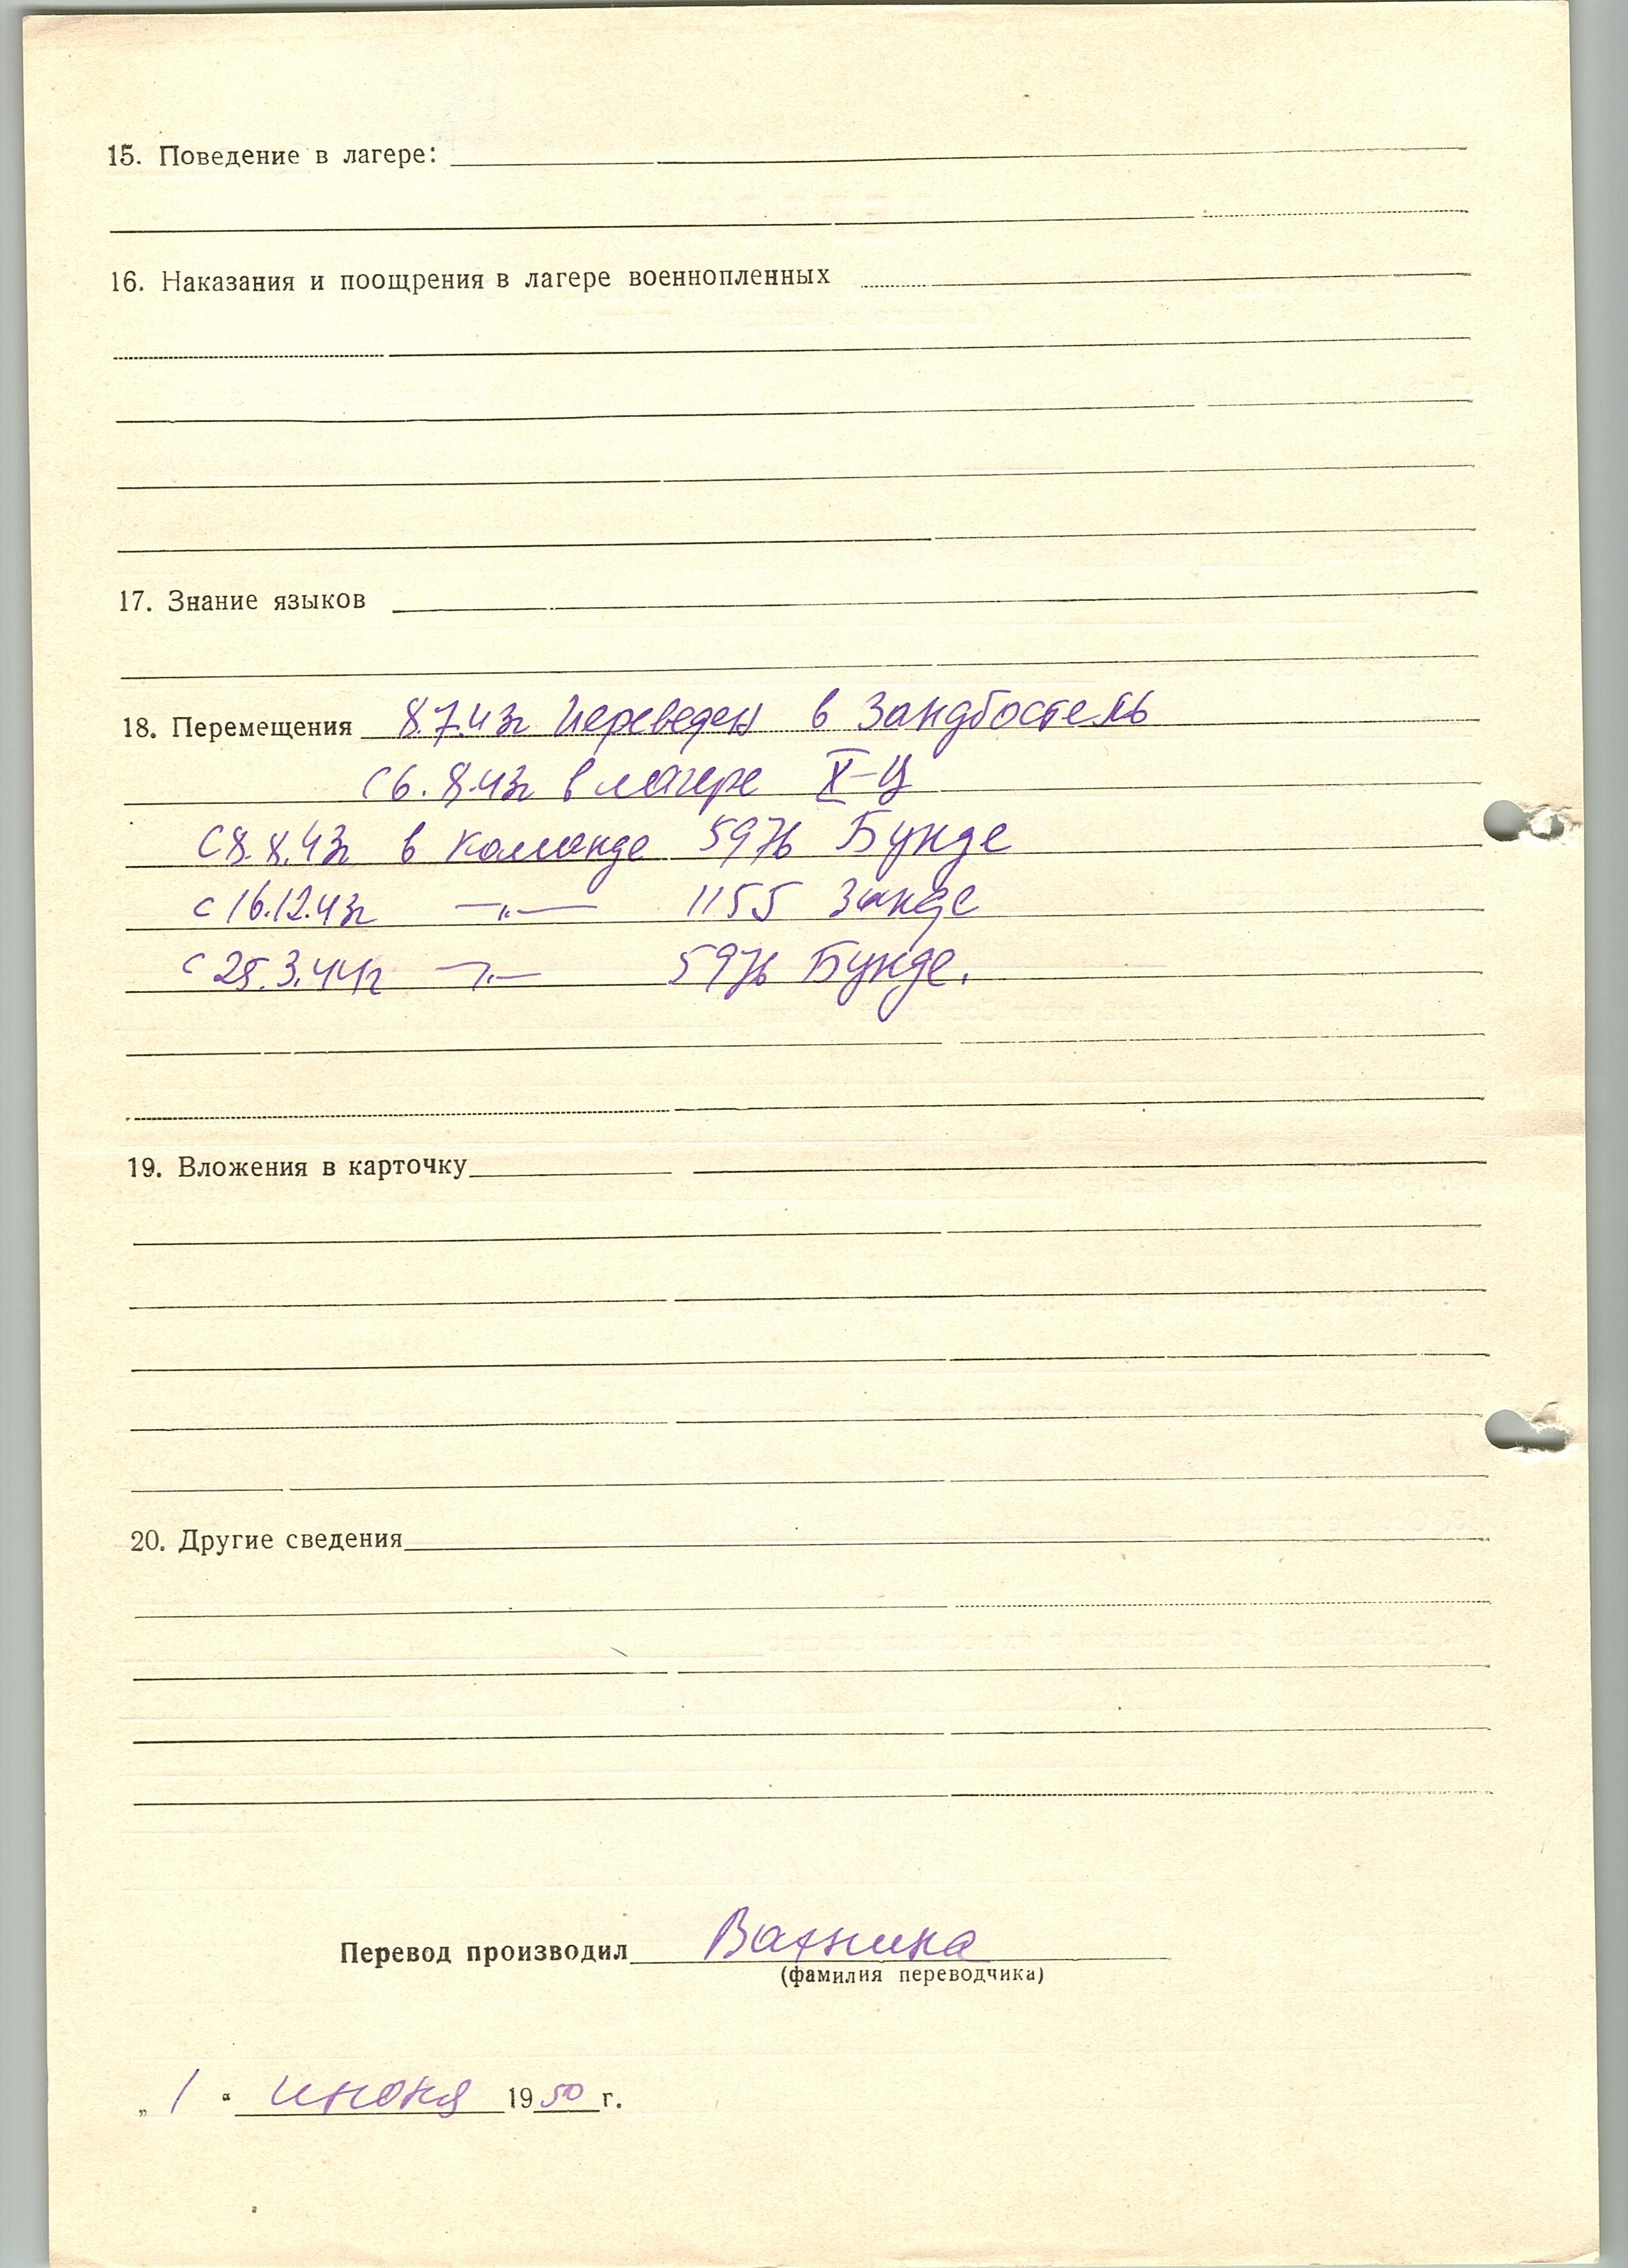 15. Поведение в лагере:
16. Наказания и поощрения в лагере военнопленных
17. Знание языков
18. Перемещения 8.7.43г переведен в Зандбостель
С 6.8.43г в лагере X-Ц
С 8.8.43г в команде 5976 Бунде
с 16.12.43г —„— 1155 Занде
с 25.3.44г —„— 5976 Бунде.
19. Вложения в карточку
20. Другие сведения
Перевод производил
(фамилия переводчика)
„ 1 “ июня 1950 г.